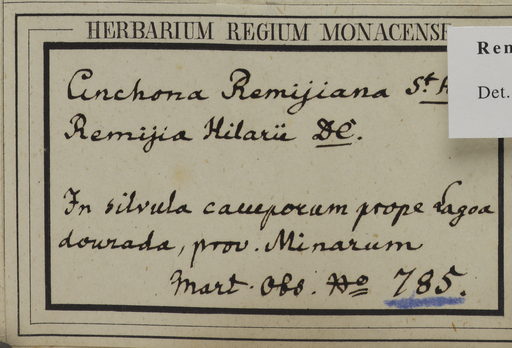 HERBARIUM REGIUM MONACENSE
Rem
Det.
Cinchona Remijiana St. H
Remijia Hilarii DC.
In silvula camporum prope Lagoa
dourada, prov. Minarum
Mart. Obs. No 785.